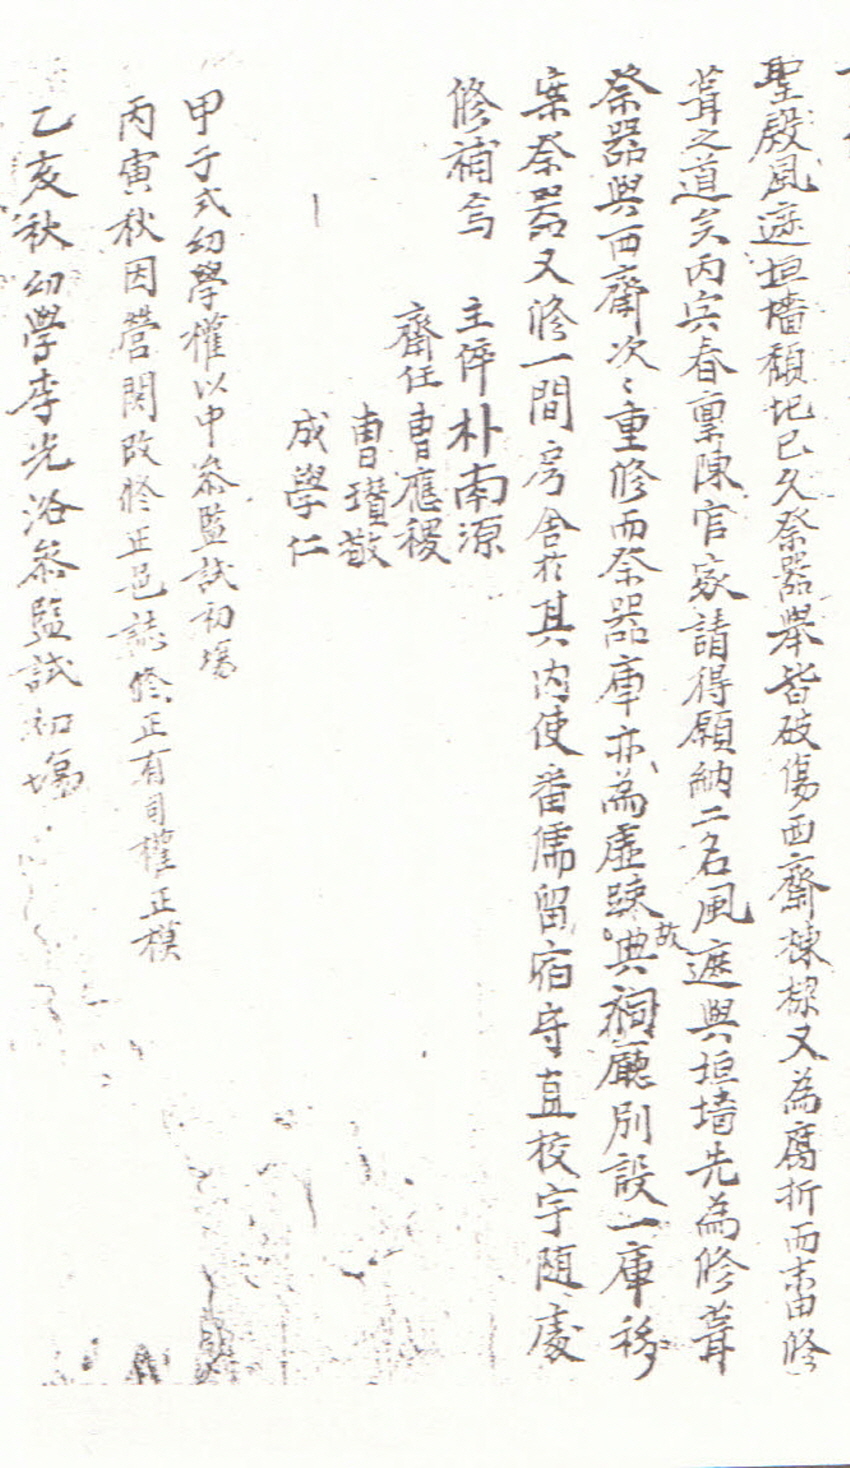 聖殿風遮垣墻頹圮已久祭器舉皆破傷西齋棟樑又爲腐折而未由修
葺之道矣丙寅春稟陳官家請得願納二名風遮與垣墻先爲修葺
祭器與西齋次〻重修而祭器庫亦爲虛踈故典祠廳別設一庫移
案祭器又修一間房舍於其內使番儒留宿守直校宇隨處
修補焉
主倅朴南源
齋任曺應稷
曺瓚敬
成學仁
甲子式幼學權以中叅監試初場
丙寅秋因營関改修正邑誌修正有司權正模
乙亥秋幼學李光浴叅監試初場